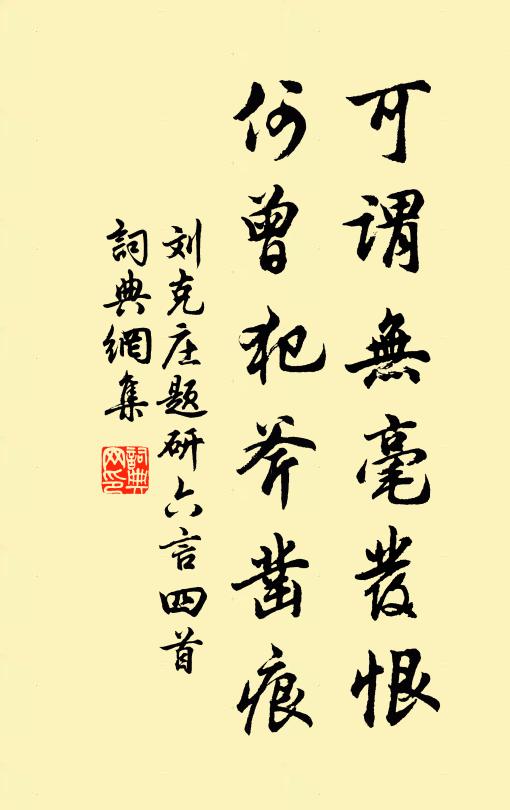 可谓無毫發恨
何曾犯斧凿痕
刘克庄题研六言四首
詞典網集
詞典
网印